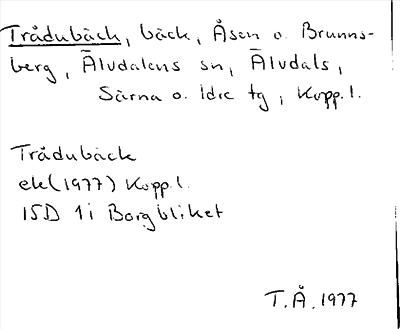 Trådubäck, bäck, Åsen o. Brunns-
berg, Älvdalens sn, Älvdals,
Särna o. Idre tg, Kopp. l.
Trådubäck
ek (1977) Kopp. l.
15D 1i Borgbliket
T.Å. 1977